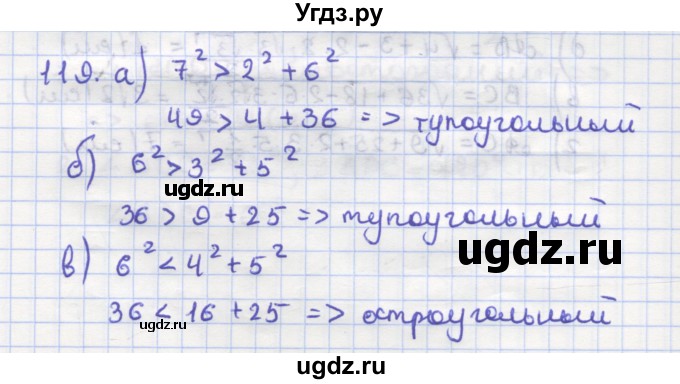 Угдз.ру
119. а) 7² > 2² + 6²
49 > 4 + 36 => тупоугольный
б) 6² > 3² + 5²
угдз.ru
36 > 9 + 25 => тупоугольный
угдз.ru
в) 6² < 4² + 5²
36 < 16 + 25 => остроугольный
угдз.ru
угдз.ru